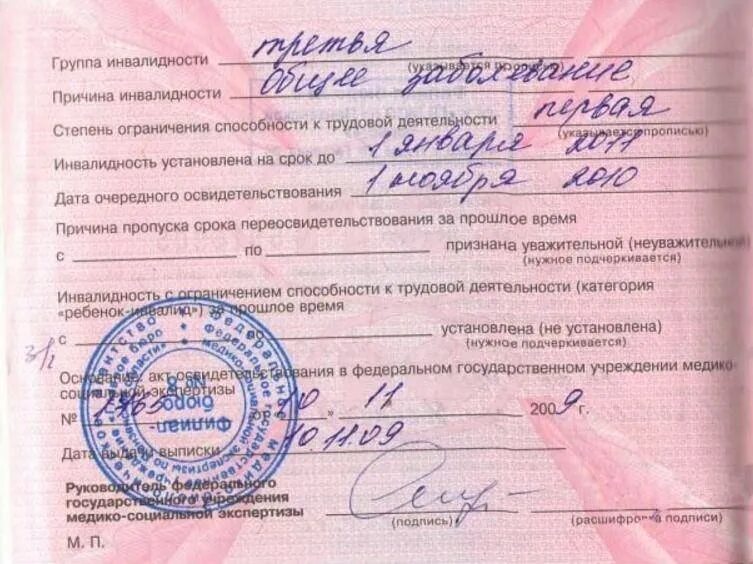 Группа инвалидности третья
(указывается прописью)
Причина инвалидности Общее заболевание
Степень ограничения способности к трудовой деятельности первая
(указывается прописью)
Инвалидность установлена на срок до 1 января 2011
Дата очередного освидетельствования 1 ноября 2010
Причина пропуска срока переосвидетельствования за прошлое время
с по признана уважительной (неуважительной)
(нужное подчеркивается)
Инвалидность с ограничением способности к трудовой деятельности (категория
«ребенок-инвалид») за прошлое время
с по установлена (не установлена)
(нужное подчеркивается)
Основание: акт освидетельствования в федеральном государственном учреждении медико-
социальной экспертизы
№ от «10» 11 2009 г.
Дата выдачи выписки 10.11.09
Руководитель федерального
государственного учреждения
медико-социальной экспертизы
(подпись) (расшифровка подписи)
М. П.
филиал
бюро
№ 8